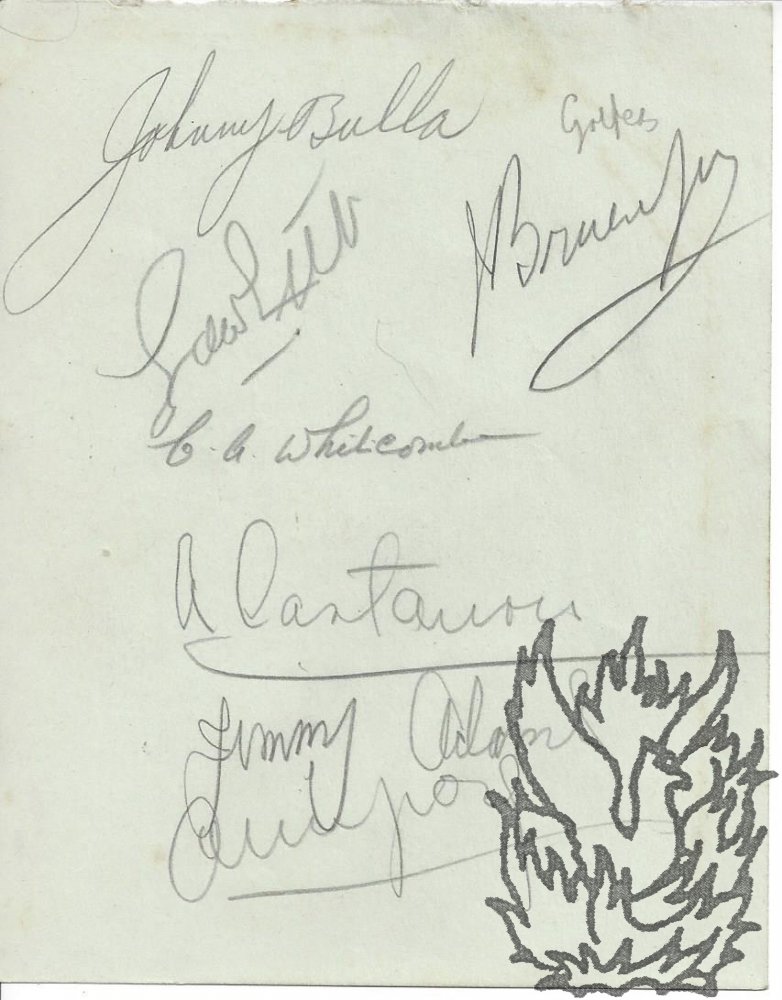 Johnny Bulla
Golfers
J Bruen Jnr
C. A. Whitcombe
A Castanon
Jimmy Adams